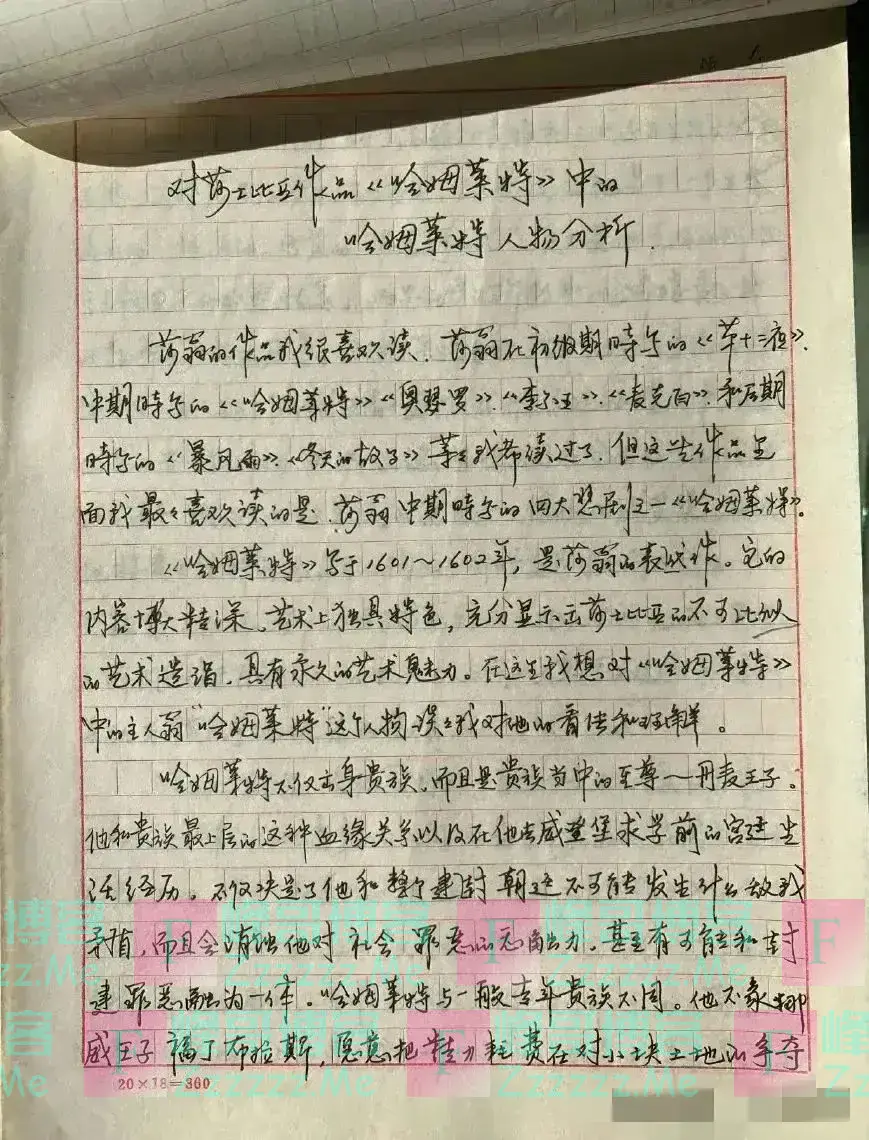 对莎士比亚作品《哈姆莱特》中的
哈姆莱特人物分析.
莎翁的作品我很喜欢读.莎翁在初级期時写的《第十二夜》.
中期時写的《哈姆莱特》《奥瑟罗》.《李尔王》.《麦克白》.和后期
時写的《暴风雨》.《冬天的故事》等等我都读过了.但这些作品里
面我最最喜欢读的是.莎翁中期時写的四大悲剧之一《哈姆莱特》.
《哈姆莱特》写于1601～1602年,是莎翁的表代作。它的
内容博大精深.艺术上独具特色,充分显示出莎士比亚的不可比拟
的艺术造诣.具有永久的艺术魅力。在这里我想对《哈姆莱特》
中的主人翁"哈姆莱特"这个人物谈谈我对他的看法和理解。
哈姆莱特不仅出身贵族.而且是贵族当中的至尊—丹麦王子。
他和贵族最上层的这种血缘关系以及在他去威登堡求学前的宫廷生
活经历.不仅决定了他和整个封建朝廷不可能发生什么敌我
矛盾,而且会消蚀他对社会罪恶的能力.甚至有可能和封
建罪恶融为一体。哈姆莱特与一般青年贵族不同。他不象挪
威王子福丁布拉斯,愿意把精力耗费在对小块土地的争夺
20×18=360
峰博客
Zzzzzz.Me
F